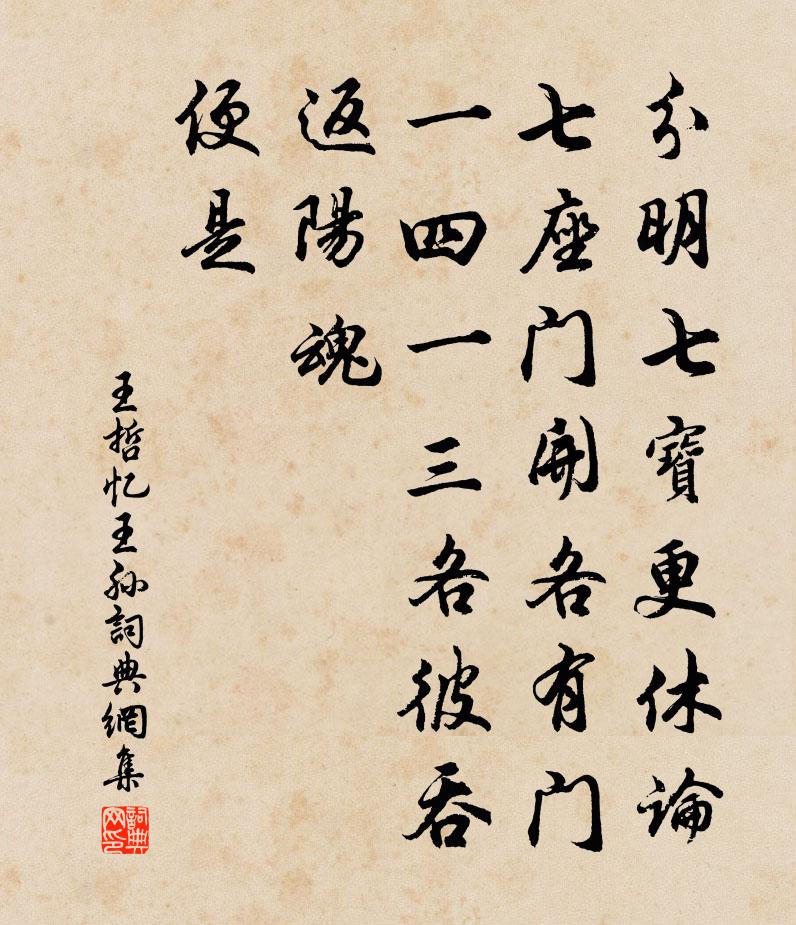 分明七寶更休論
七座門開各有門
一四一三各彼吞
返陽魂
便是
王哲忆王孙詞典網集
詞典
网印